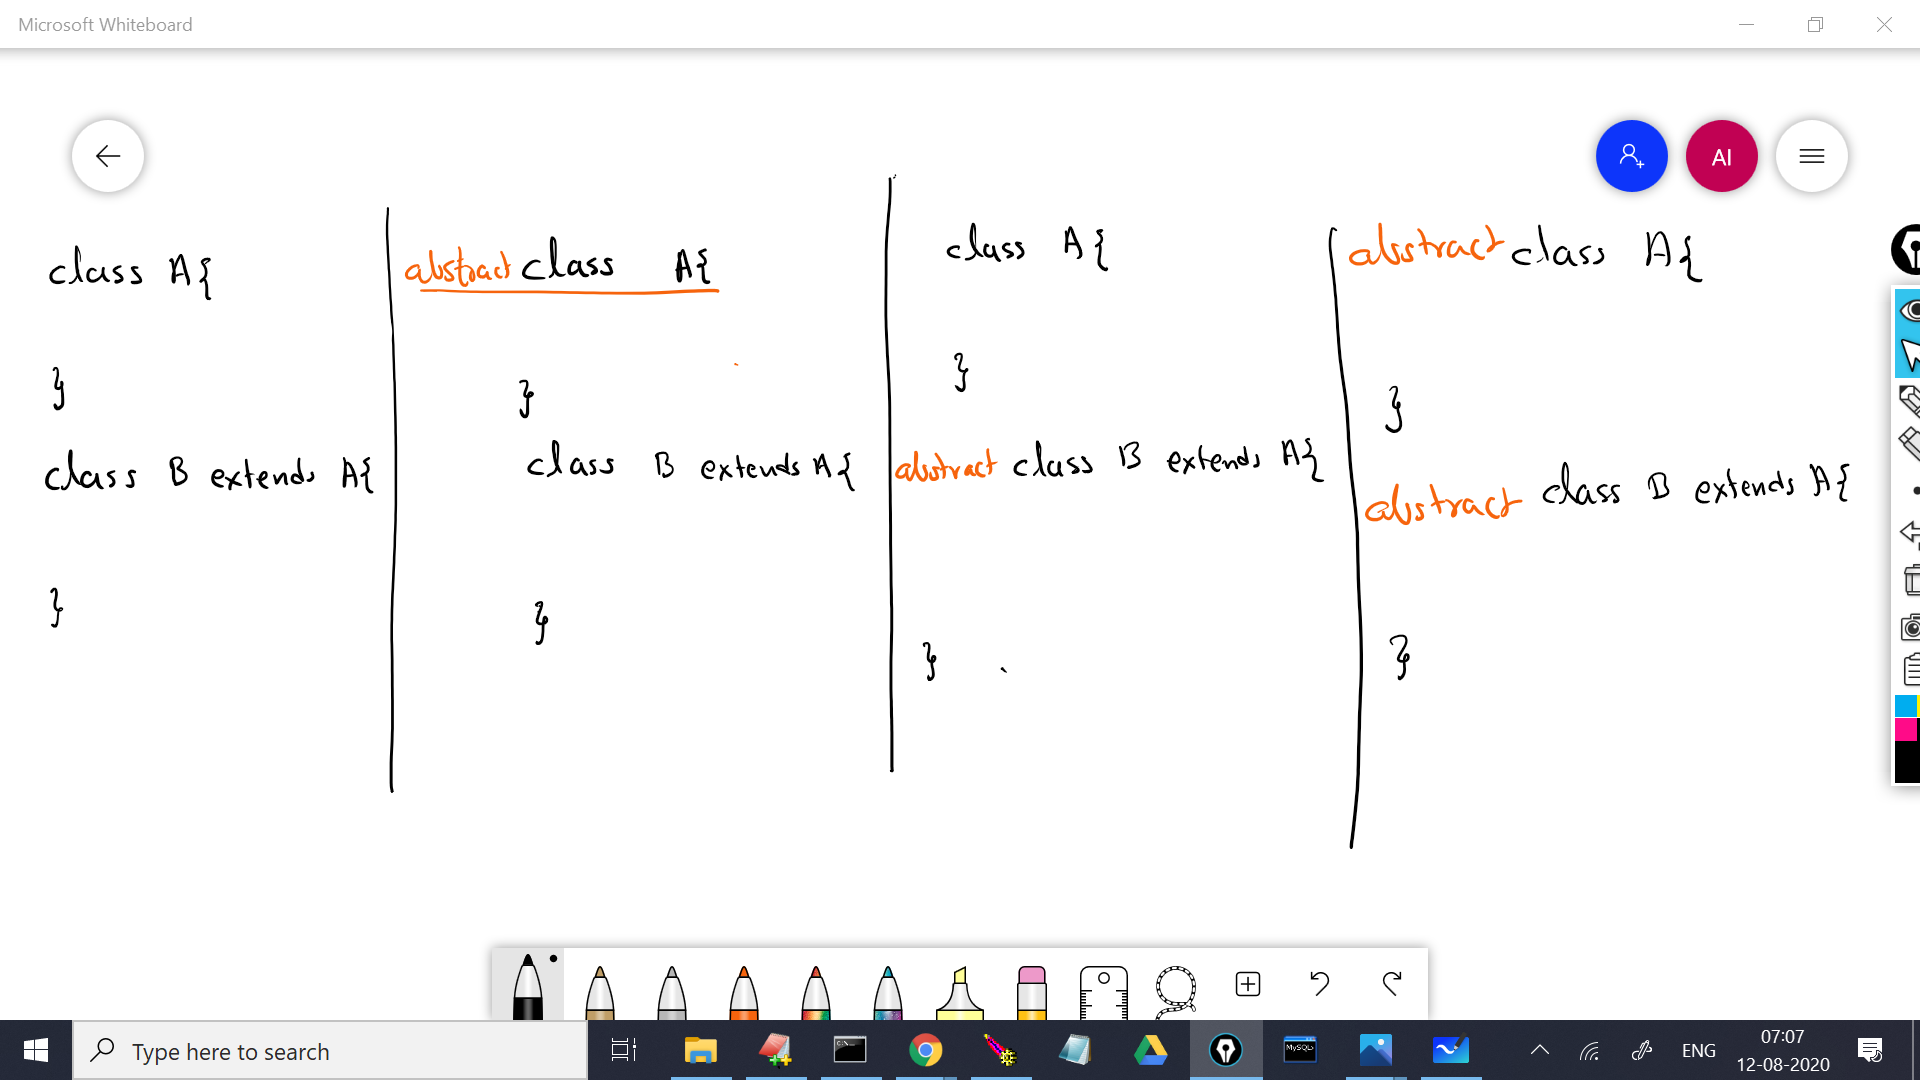 Microsoft Whiteboard
AI
class A{
}
class B extends A{
}
abstract class A{
}
class B extends A{
}
class A{
}
abstract class B extends A{
}
abstract class A{
}
abstract class B extends A{
}
Type here to search
MySQL
ENG
07:07
12-08-2020